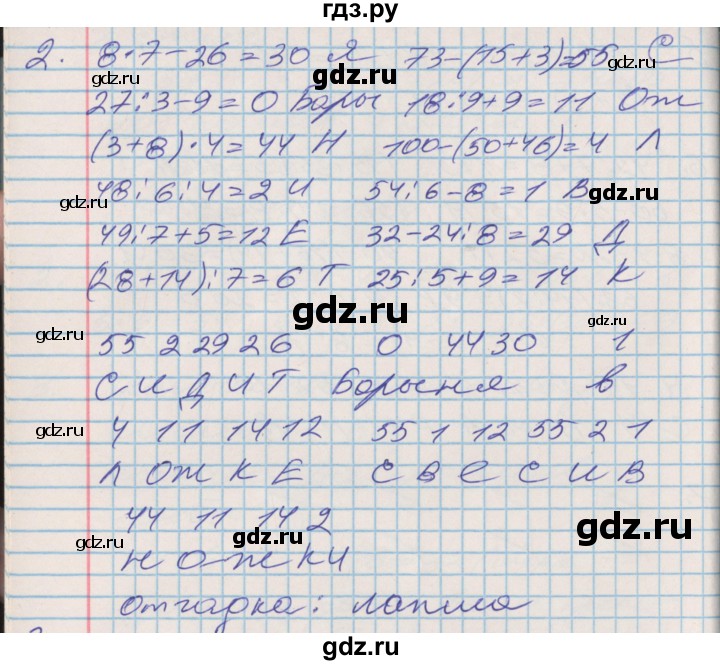 гдз.ру
2. 8·7-26=30 Я 73-(15+3)=55 С
27:3-9=0 Бары 18:9+9=11 Ож
(3+8)·4=44 Н 100-(50+46)=4 Л
48:6:4=2 И 54:6-8=1 В
49:7+5=12 Е 32-24:8=29 Д
(28+14):7=6 Т 25:5+9=14 К
55 2 29 2 6 0 44 30 1
СИДИТ Барыня в
4 11 14 12 55 1 12 55 2 1
Л ОЖ К Е С В Е С И В
44 11 14 2
Н О Ж К И
Отгадка: лапша
gdz.ru
gdz.ru
gdz.ru
gdz.ru
gdz.ru
gdz.ru
gdz.ru
gdz.ru
gdz.ru
gdz.ru
gdz.ru
gdz.ru
gdz.ru
gdz.ru